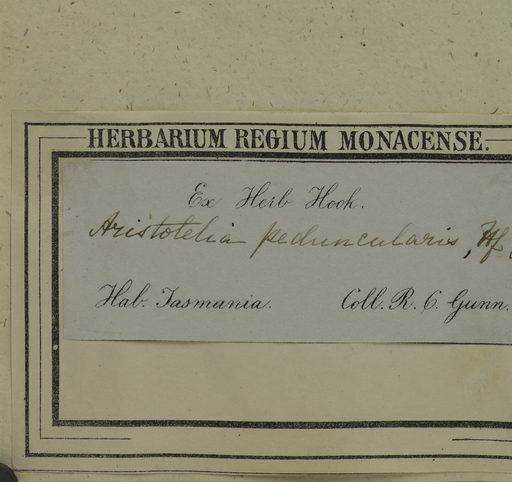 HERBARIUM REGIUM MONACENSE.
Ex Herb Hook.
Aristotelia peduncularis, Hf
Hab. Tasmania. Coll. R. C. Gunn.